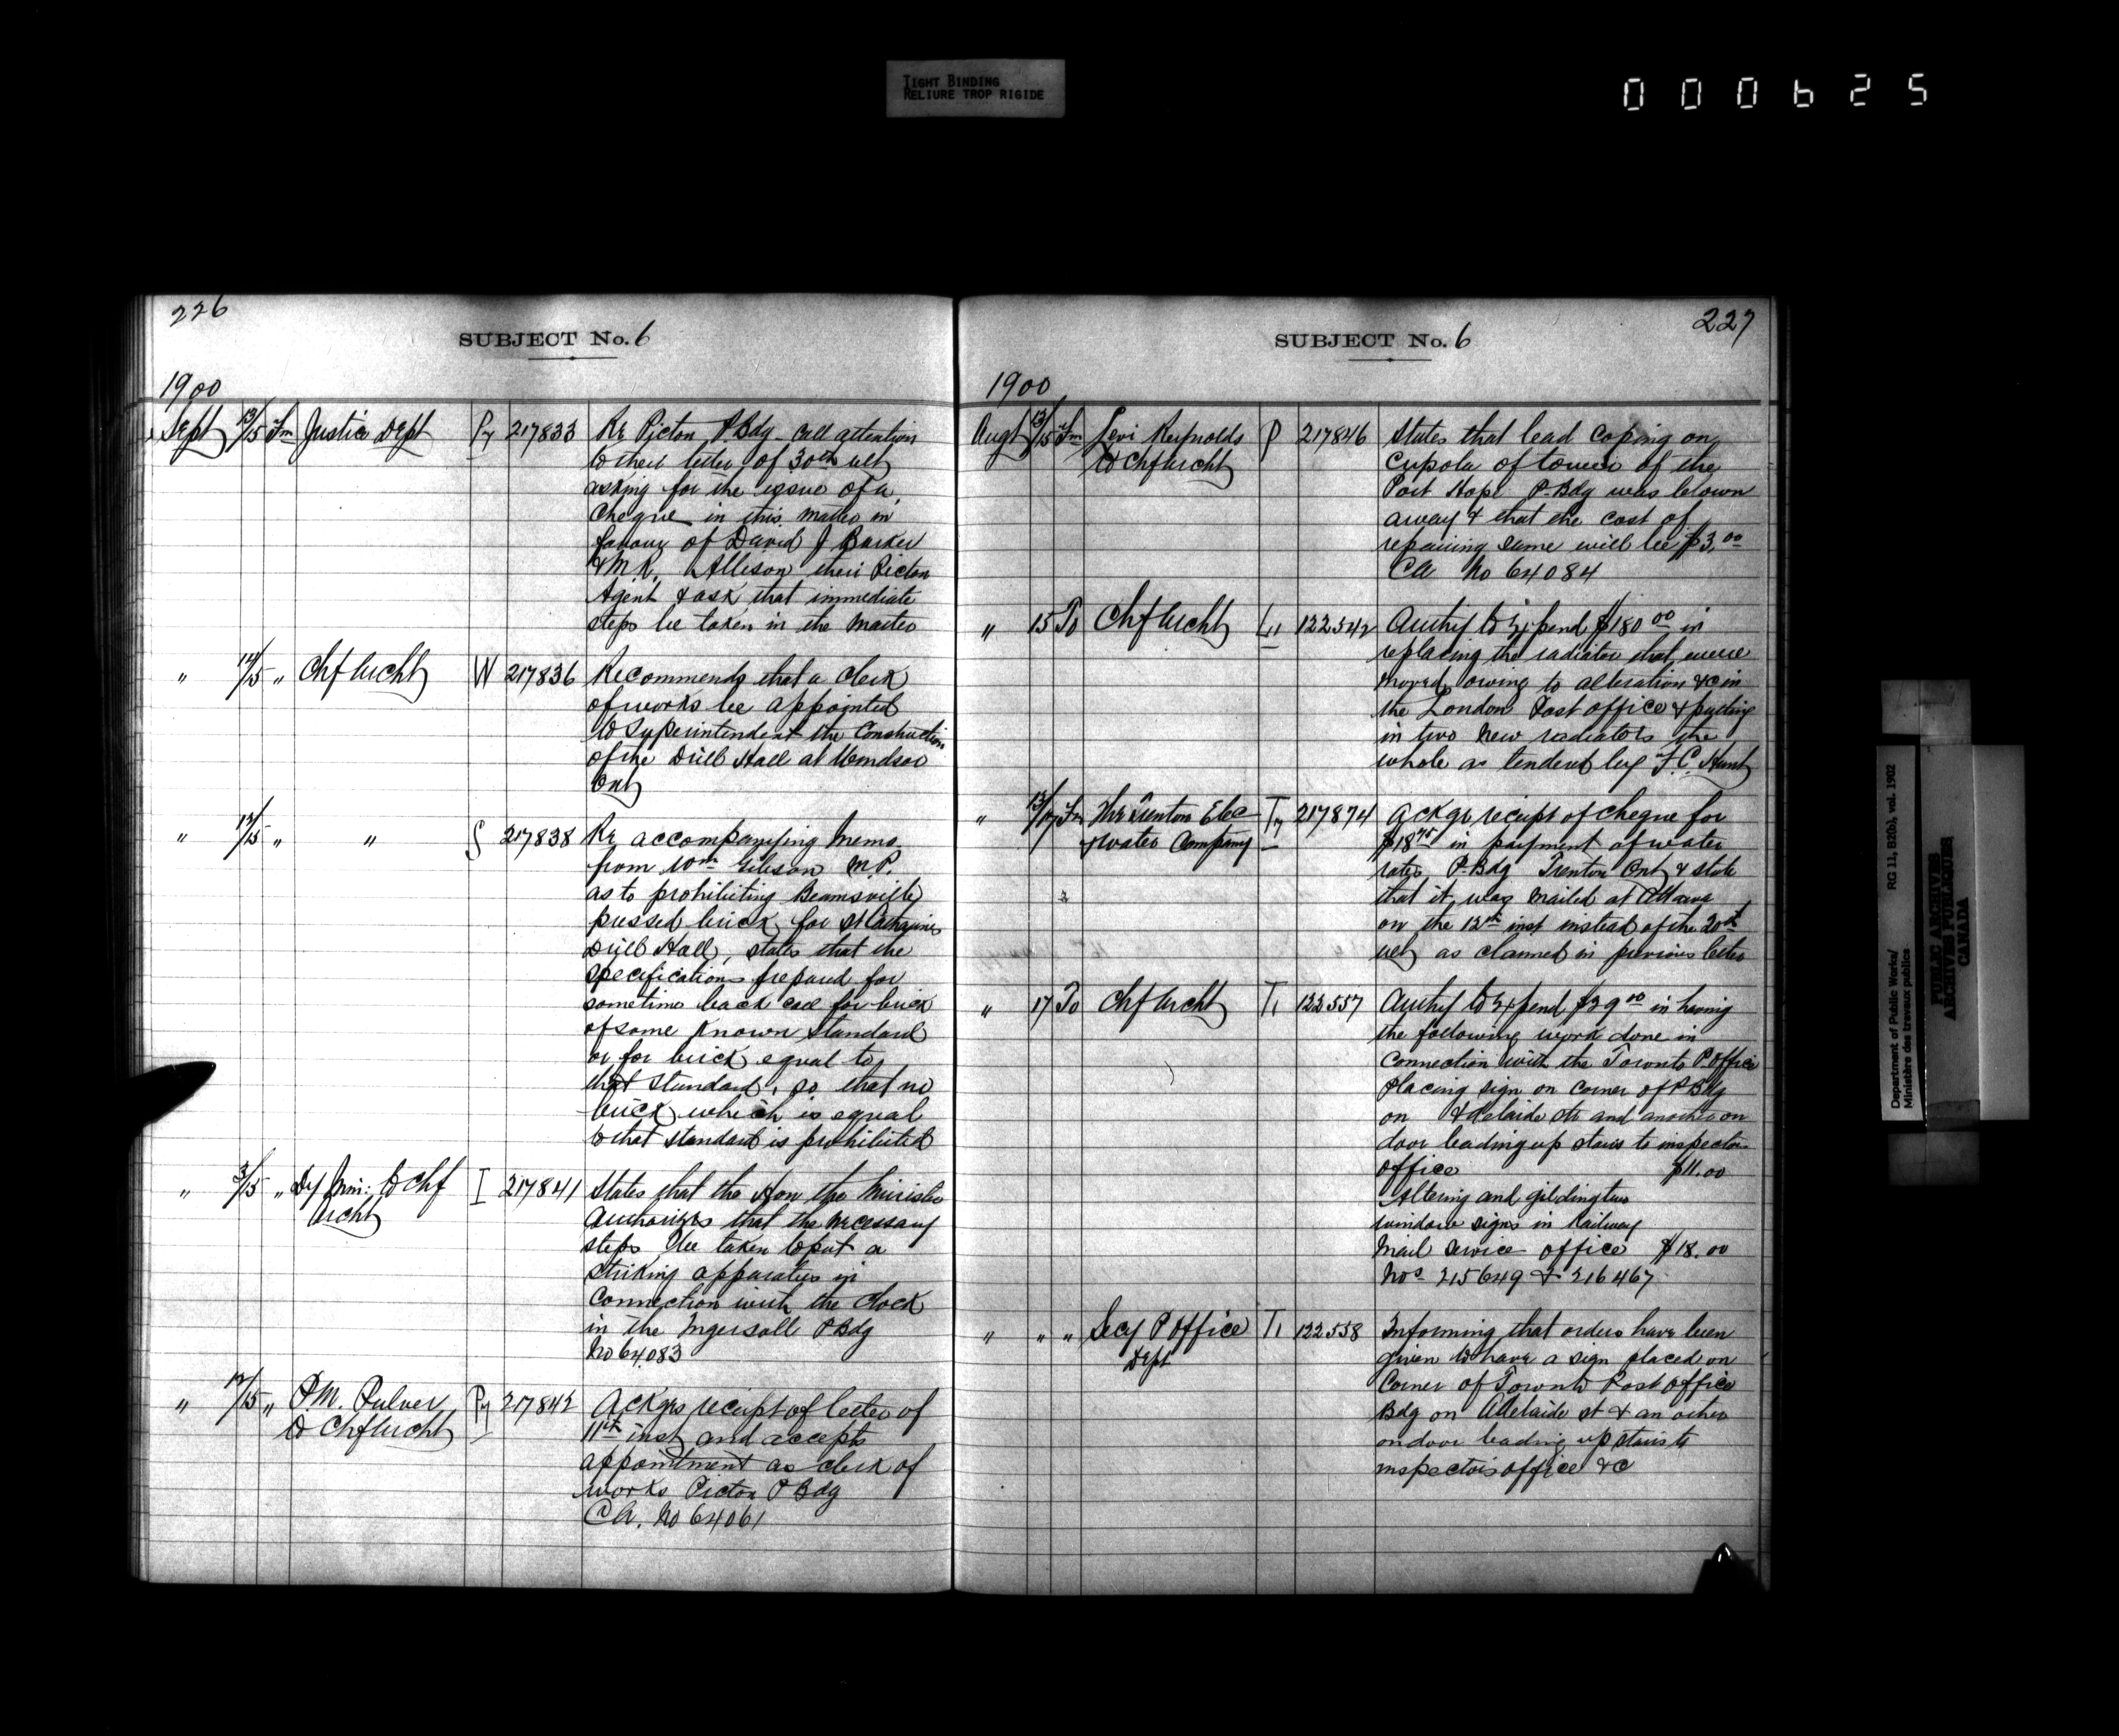 TIGHT BINDING
RELIURE TROP RIGIDE
000625
226
SUBJECT No. 6
1900
Sept 13/15 Fm Justice Dept Py 217833 Re Picton P Bdg - call attention
to their letter of 30th ult
asking for the issue of a
cheque in this matter in
favour of David J Barker
& M.R. Allison their Picton
Agent & ask that immediate
steps be taken in the matter
" 14/15 " Chf Archt W 217836 Recommends that a clerk
of works be appointed
to Superintendent the Construction
of the Drill Hall at Windsor
Ont
" 13/15 " " S 217838 Re accompanying memo
from Wm Gibson M.P.
as to prohibiting Beamsville
pressed brick for St Catharines
Drill Hall, states that the
specifications prepared for
sometime back call for brick
of some known standard
or for brick equal to
that standard, so that no
brick which is equal
to that standard is prohibited
" 3/15 " Dy Min: to Chf
Archt I 217841 States that the Hon the Minister
Authorizes that the necessary
steps be taken to put a
striking apparatus in
Connection with the clock
in the Ingersoll P Bdg
No 64083
" 12/15 " P.M. Pulver
to Chf Archt Py 217842 Ackgs receipt of letter of
11th inst and accepts
appointment as clerk of
works Picton P Bdg
CA. No 64061
227
SUBJECT No. 6
1900
Augt 13/15 Fm Levi Reynolds
to Chf Archt P 217846 States that lead coping on
Cupola of tower of the
Port Hope P-Bdg was blown
away & that the cost of
repairing same will be $3.00
CA No 64084
" 15 To Chf Archt 122542 Authy to Expend $180 00 in
replacing the radiator that were
moved owing to alteration &c in
the London Post office & putting
in two new radiators the
whole as tendered by F.C. Hunt
" 13/17 Fm The Trenton Elec
& water Company Ty 217874 Ackgs receipt of cheque for
$18 75 in payment of water
rates P-Bdg Trenton Ont & state
that it was mailed at Ottawa
on the 12th inst instead of the 20th
ult as claimed in previous letter
" 17 To Chf Archt T1 122557 Authy to Expend $29 00 in having
the following work done in
Connection with the Toronto P. Office
Placing sign on corner of P Bdg
on Adelaide str and another on
door leading up stairs to inspectors
office $11.00
Altering and gilding two
window signs in Railway
Mail Service office $18.00
Nos 215649 & 216467
" " " Secy P Office
Dept T1 122558 Informing that orders have been
given to have a sign placed on
Corner of Toronto Post office
Bdg on Adelaide st & an other
on door leading up stairs to
inspectors office &c
Department of Public Works/
Ministère des travaux publics
RG 11, B2(b), vol. 1902
PUBLIC ARCHIVES
ARCHIVES PUBLIQUES
CANADA